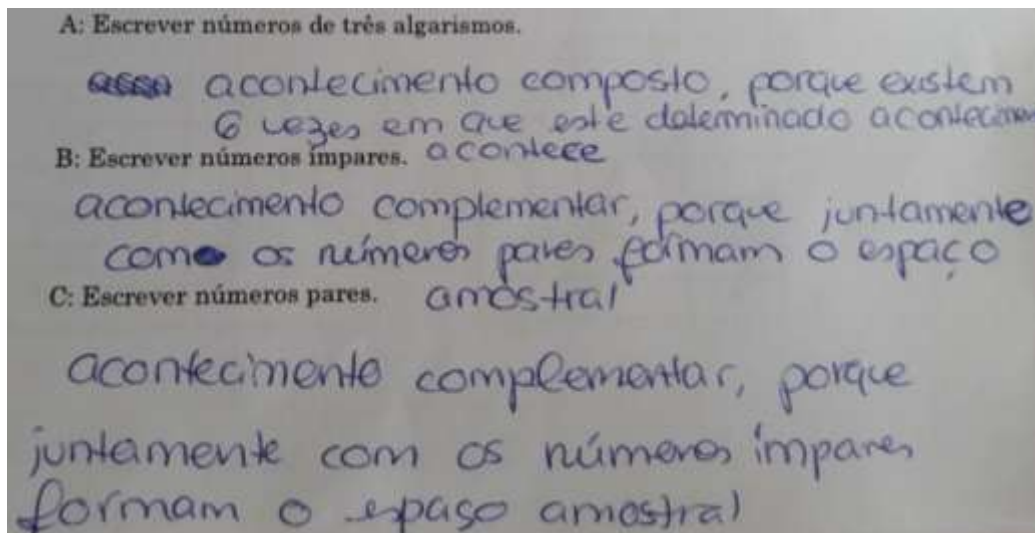 A: Escrever números de três algarismos.
acontecimento composto, porque existem
6 vezes em que este determinado acontecimen
B: Escrever números ímpares. acontece
acontecimento complementar, porque juntamente
com os números pares formam o espaço
C: Escrever números pares. amostral
acontecimento complementar, porque
juntamente com os números ímpares
formam o espaso amostral